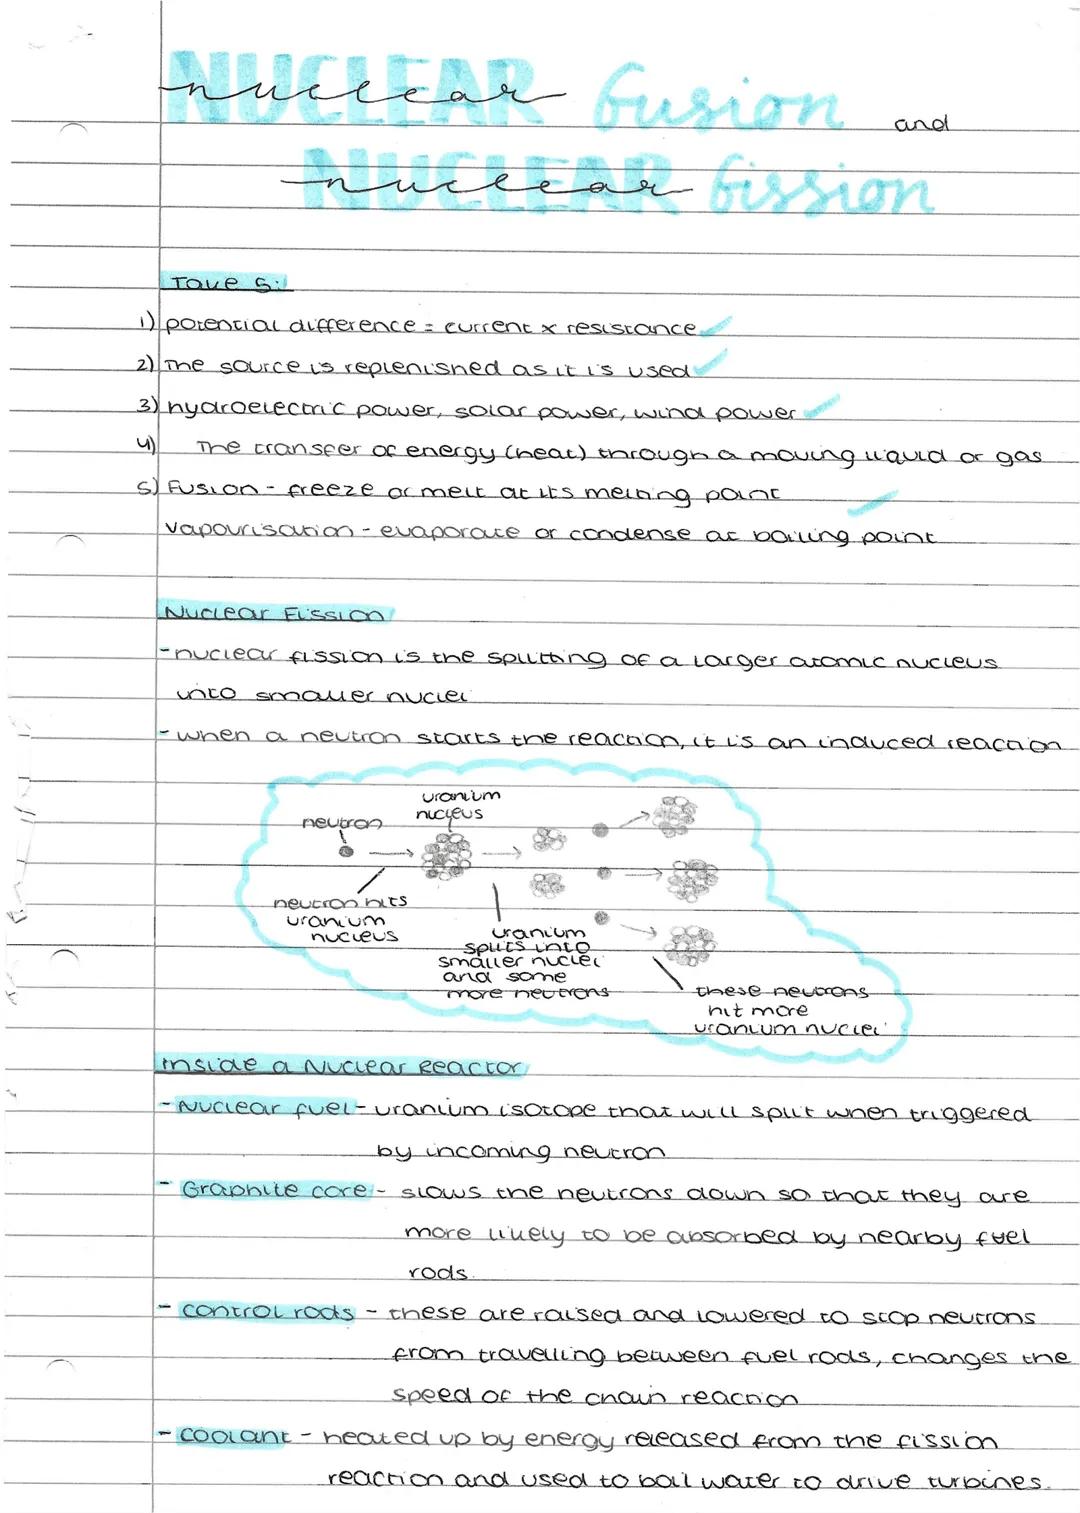 nuclear fusion and
nuclear fission
Take 5:
1) potential difference = current x resistance
2) The source is replenished as it is used
3) hydroelectric power, solar power, wind power
4) The transfer of energy (heat) through a moving liquid or gas
5) Fusion - freeze or melt at its melting point
Vapourisation - evaporate or condense at boiling point
Nuclear Fission
- nuclear fission is the splitting of a larger atomic nucleus
into smaller nuclei
- when a neutron starts the reaction, it is an induced reaction
neutron
uranium
nucleus
neutron hits
uranium
nucleus
uranium
splits into
smaller nuclei
and some
more neutrons
these neutrons
hit more
uranium nuclei
Inside a Nuclear Reactor
- Nuclear fuel - uranium isotope that will split when triggered
by incoming neutron
- Graphite core - slows the neutrons down so that they are
more likely to be absorbed by nearby fuel
rods.
- control rods - these are raised and lowered to stop neutrons
from travelling between fuel rods, changes the
speed of the chain reaction
- coolant - heated up by energy released from the fission
reaction and used to boil water to drive turbines.